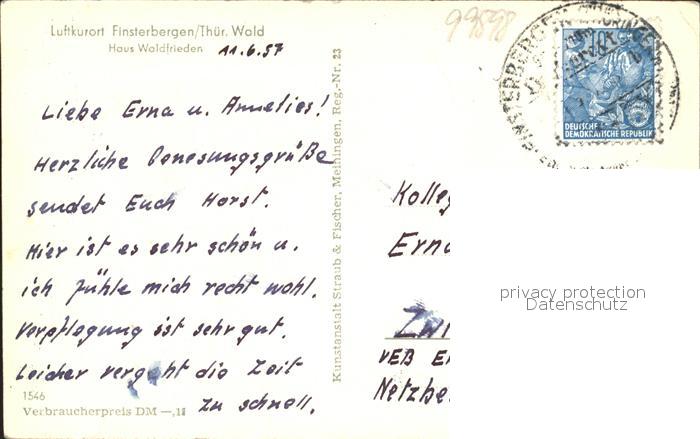 Luftkurort Finsterbergen/Thür. Wald
Haus Waldfrieden
11.6.57
99898
Liebe Erna u. Annelies!
Herzliche Genesungsgrüße
sendet Euch Horst.
Hier ist es sehr schön u.
ich fühle mich recht wohl.
Verpflegung ist sehr gut.
Leider vergeht die Zeit
zu schnell.
1546
Verbraucherpreis DM —,11
Kunstanstalt Straub & Fischer, Meiningen, Reg.-Nr. 23
FINSTERBERGEN
DEUTSCHE
DEMOKRATISCHE REPUBLIK
10
Kolleg
Erna
Zwi
VEB
Netzbe
privacy protection
Datenschutz